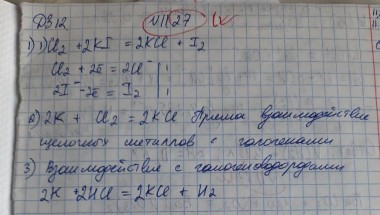 ДЗ 12 N1127
1) 1) Cl₂ + 2KI = 2KCl + I₂
Cl₂ + 2ē = 2Cl⁻ | 1
2I⁻ - 2ē = I₂ | 1
2) 2K + Cl₂ = 2KCl взаимодействие
щелочных металлов с галогенами
3) Взаимодействие с галогеноводородами
2K + 2HCl = 2KCl + H₂